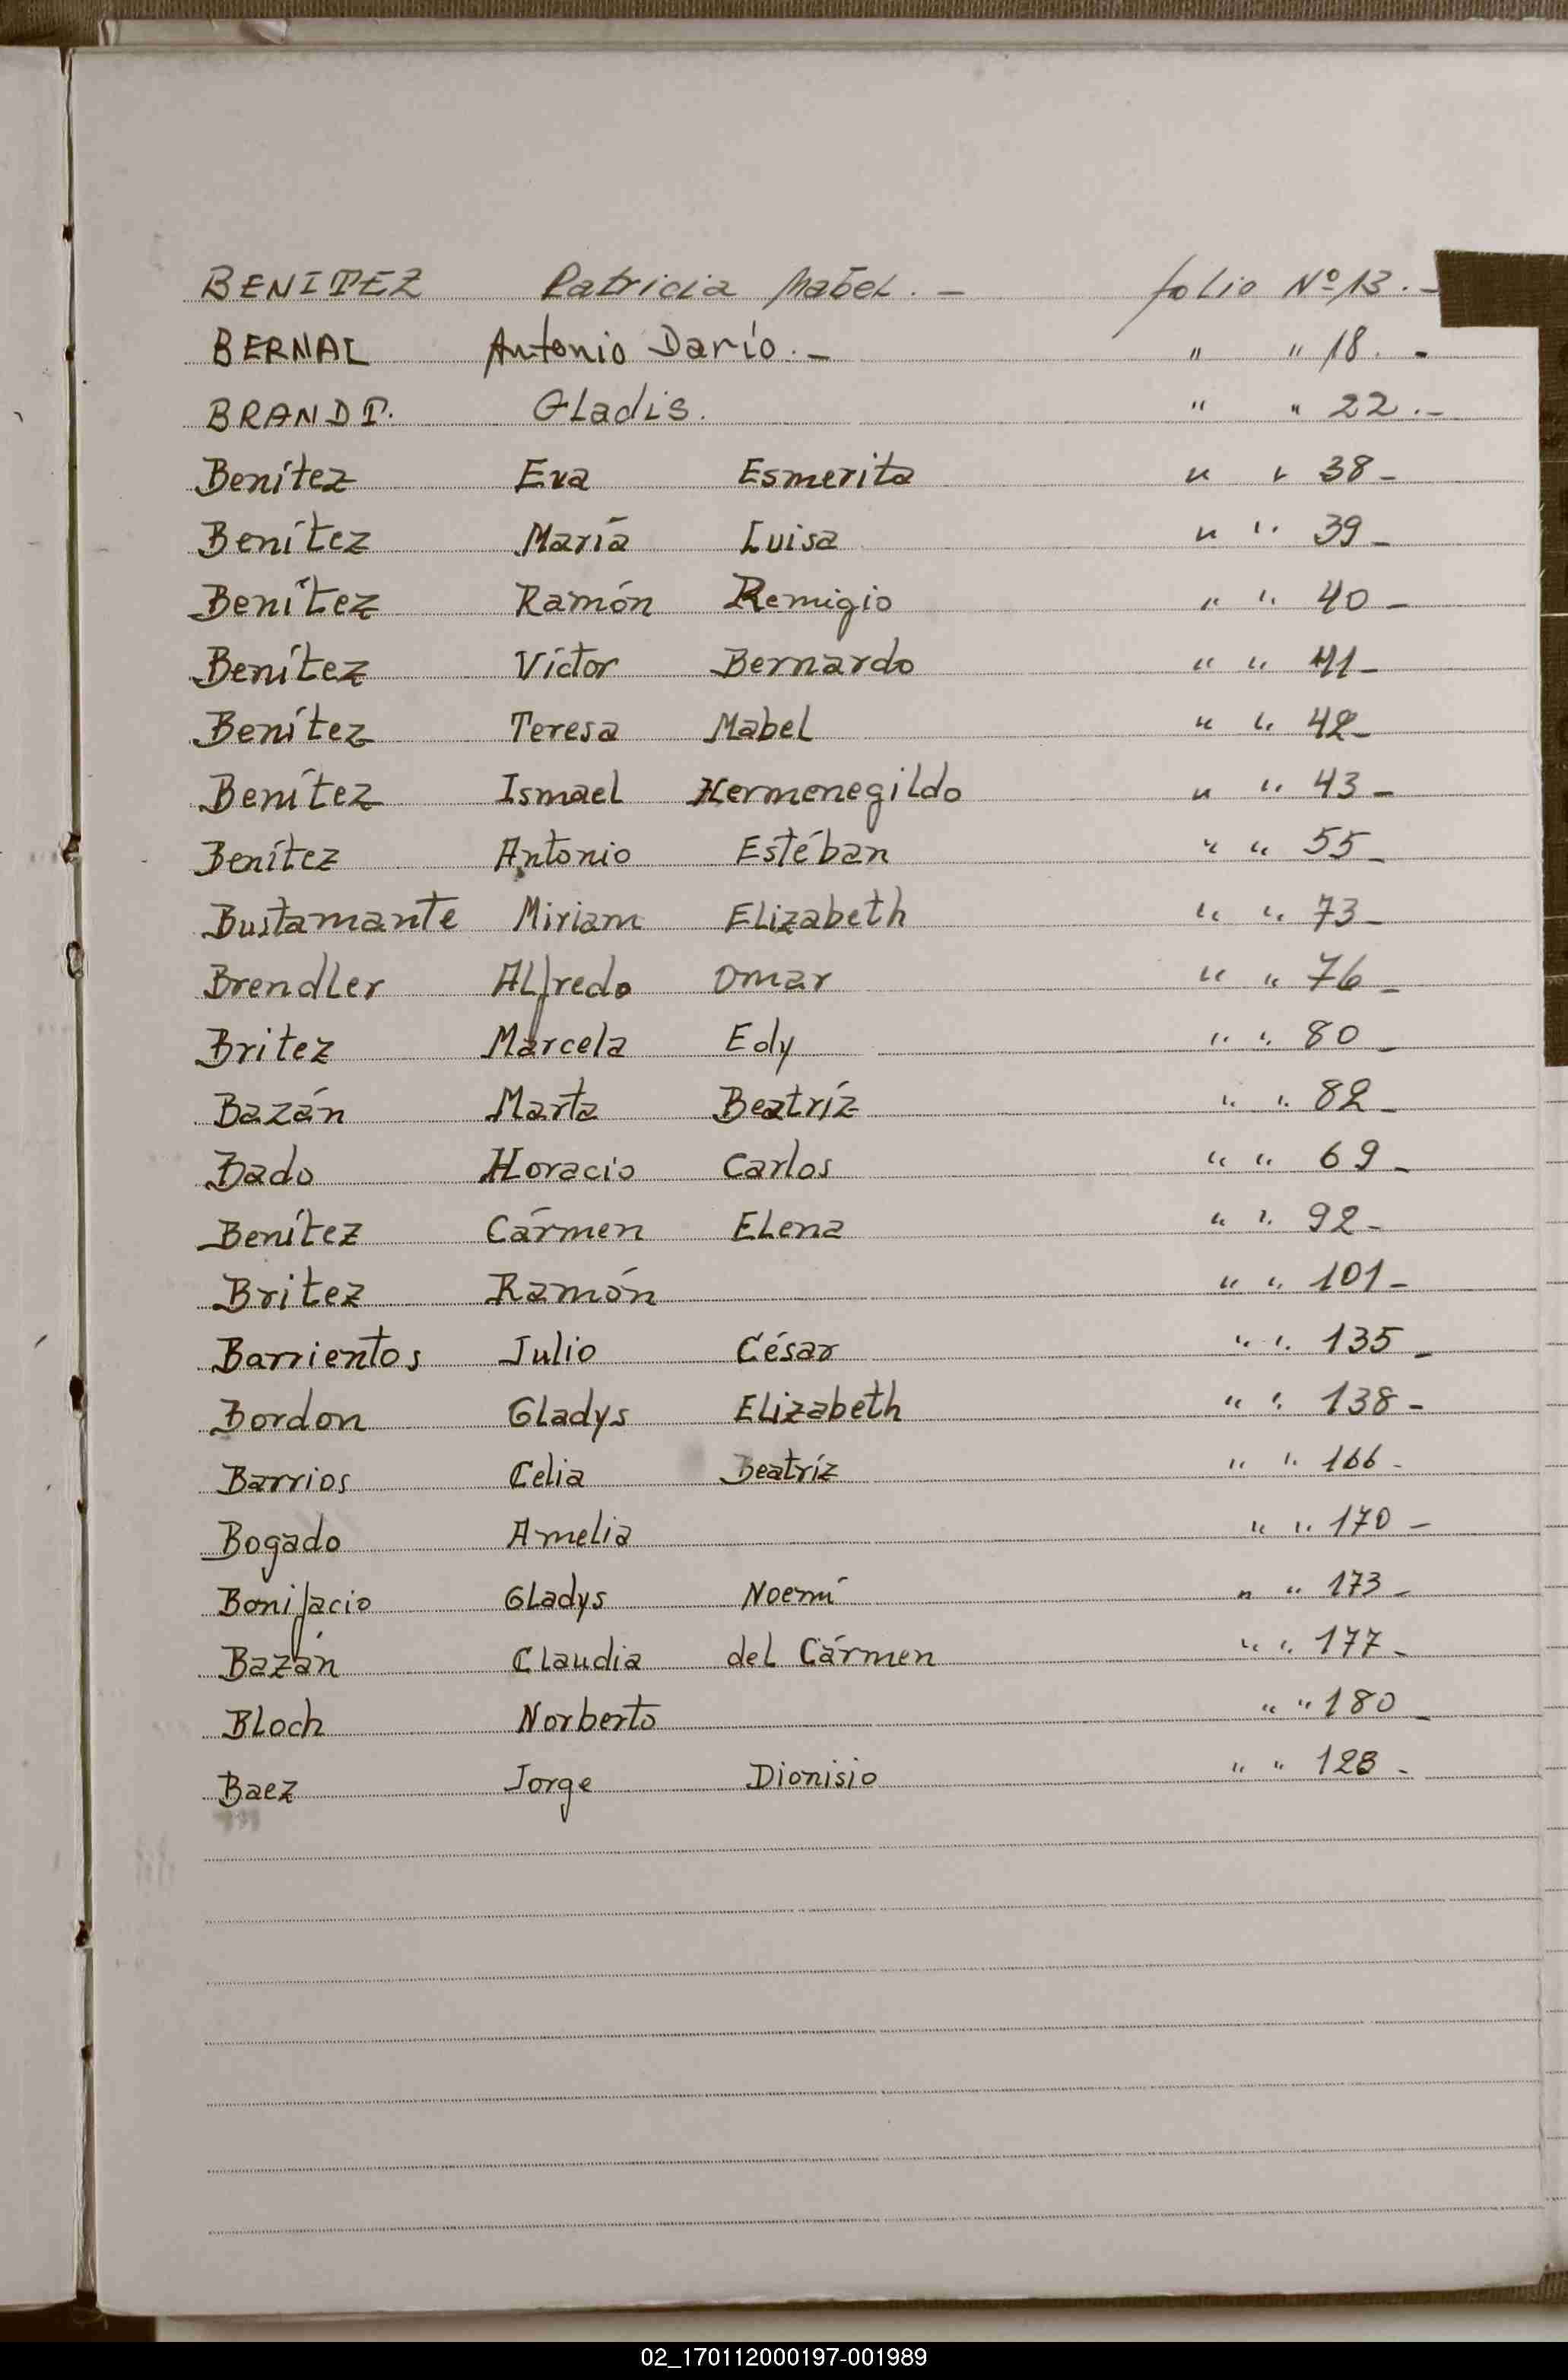 BENITEZ Patricia Mabel. - folio Nº 13. -
BERNAL Antonio Darío. - " " 18. -
BRANDT. Gladis. " " 22. -
Benítez Eva Esmerita " " 38 -
Benítez María Luisa " " 39 -
Benítez Ramón Remigio " " 40 -
Benítez Víctor Bernardo " " 41 -
Benítez Teresa Mabel " " 42 -
Benítez Ismael Hermenegildo " " 43 -
Benítez Antonio Estéban " " 55 -
Bustamante Miriam Elizabeth " " 73 -
Brendler Alfredo Omar " " 76 -
Britez Marcela Edy " " 80 -
Bazán Marta Beatríz " " 82 -
Bado Horacio Carlos " " 69 -
Benítez Cármen Elena " " 92 -
Britez Ramón " " 101 -
Barrientos Julio César " " 135 -
Bordon Gladys Elizabeth " " 138 -
Barrios Celia Beatríz " " 166 -
Bogado Amelia " " 170 -
Bonifacio Gladys Noemí " " 173 -
Bazán Claudia del Cármen " " 177 -
Bloch Norberto " " 180 -
Baez Jorge Dionisio " " 128 -
02_170112000197-001989